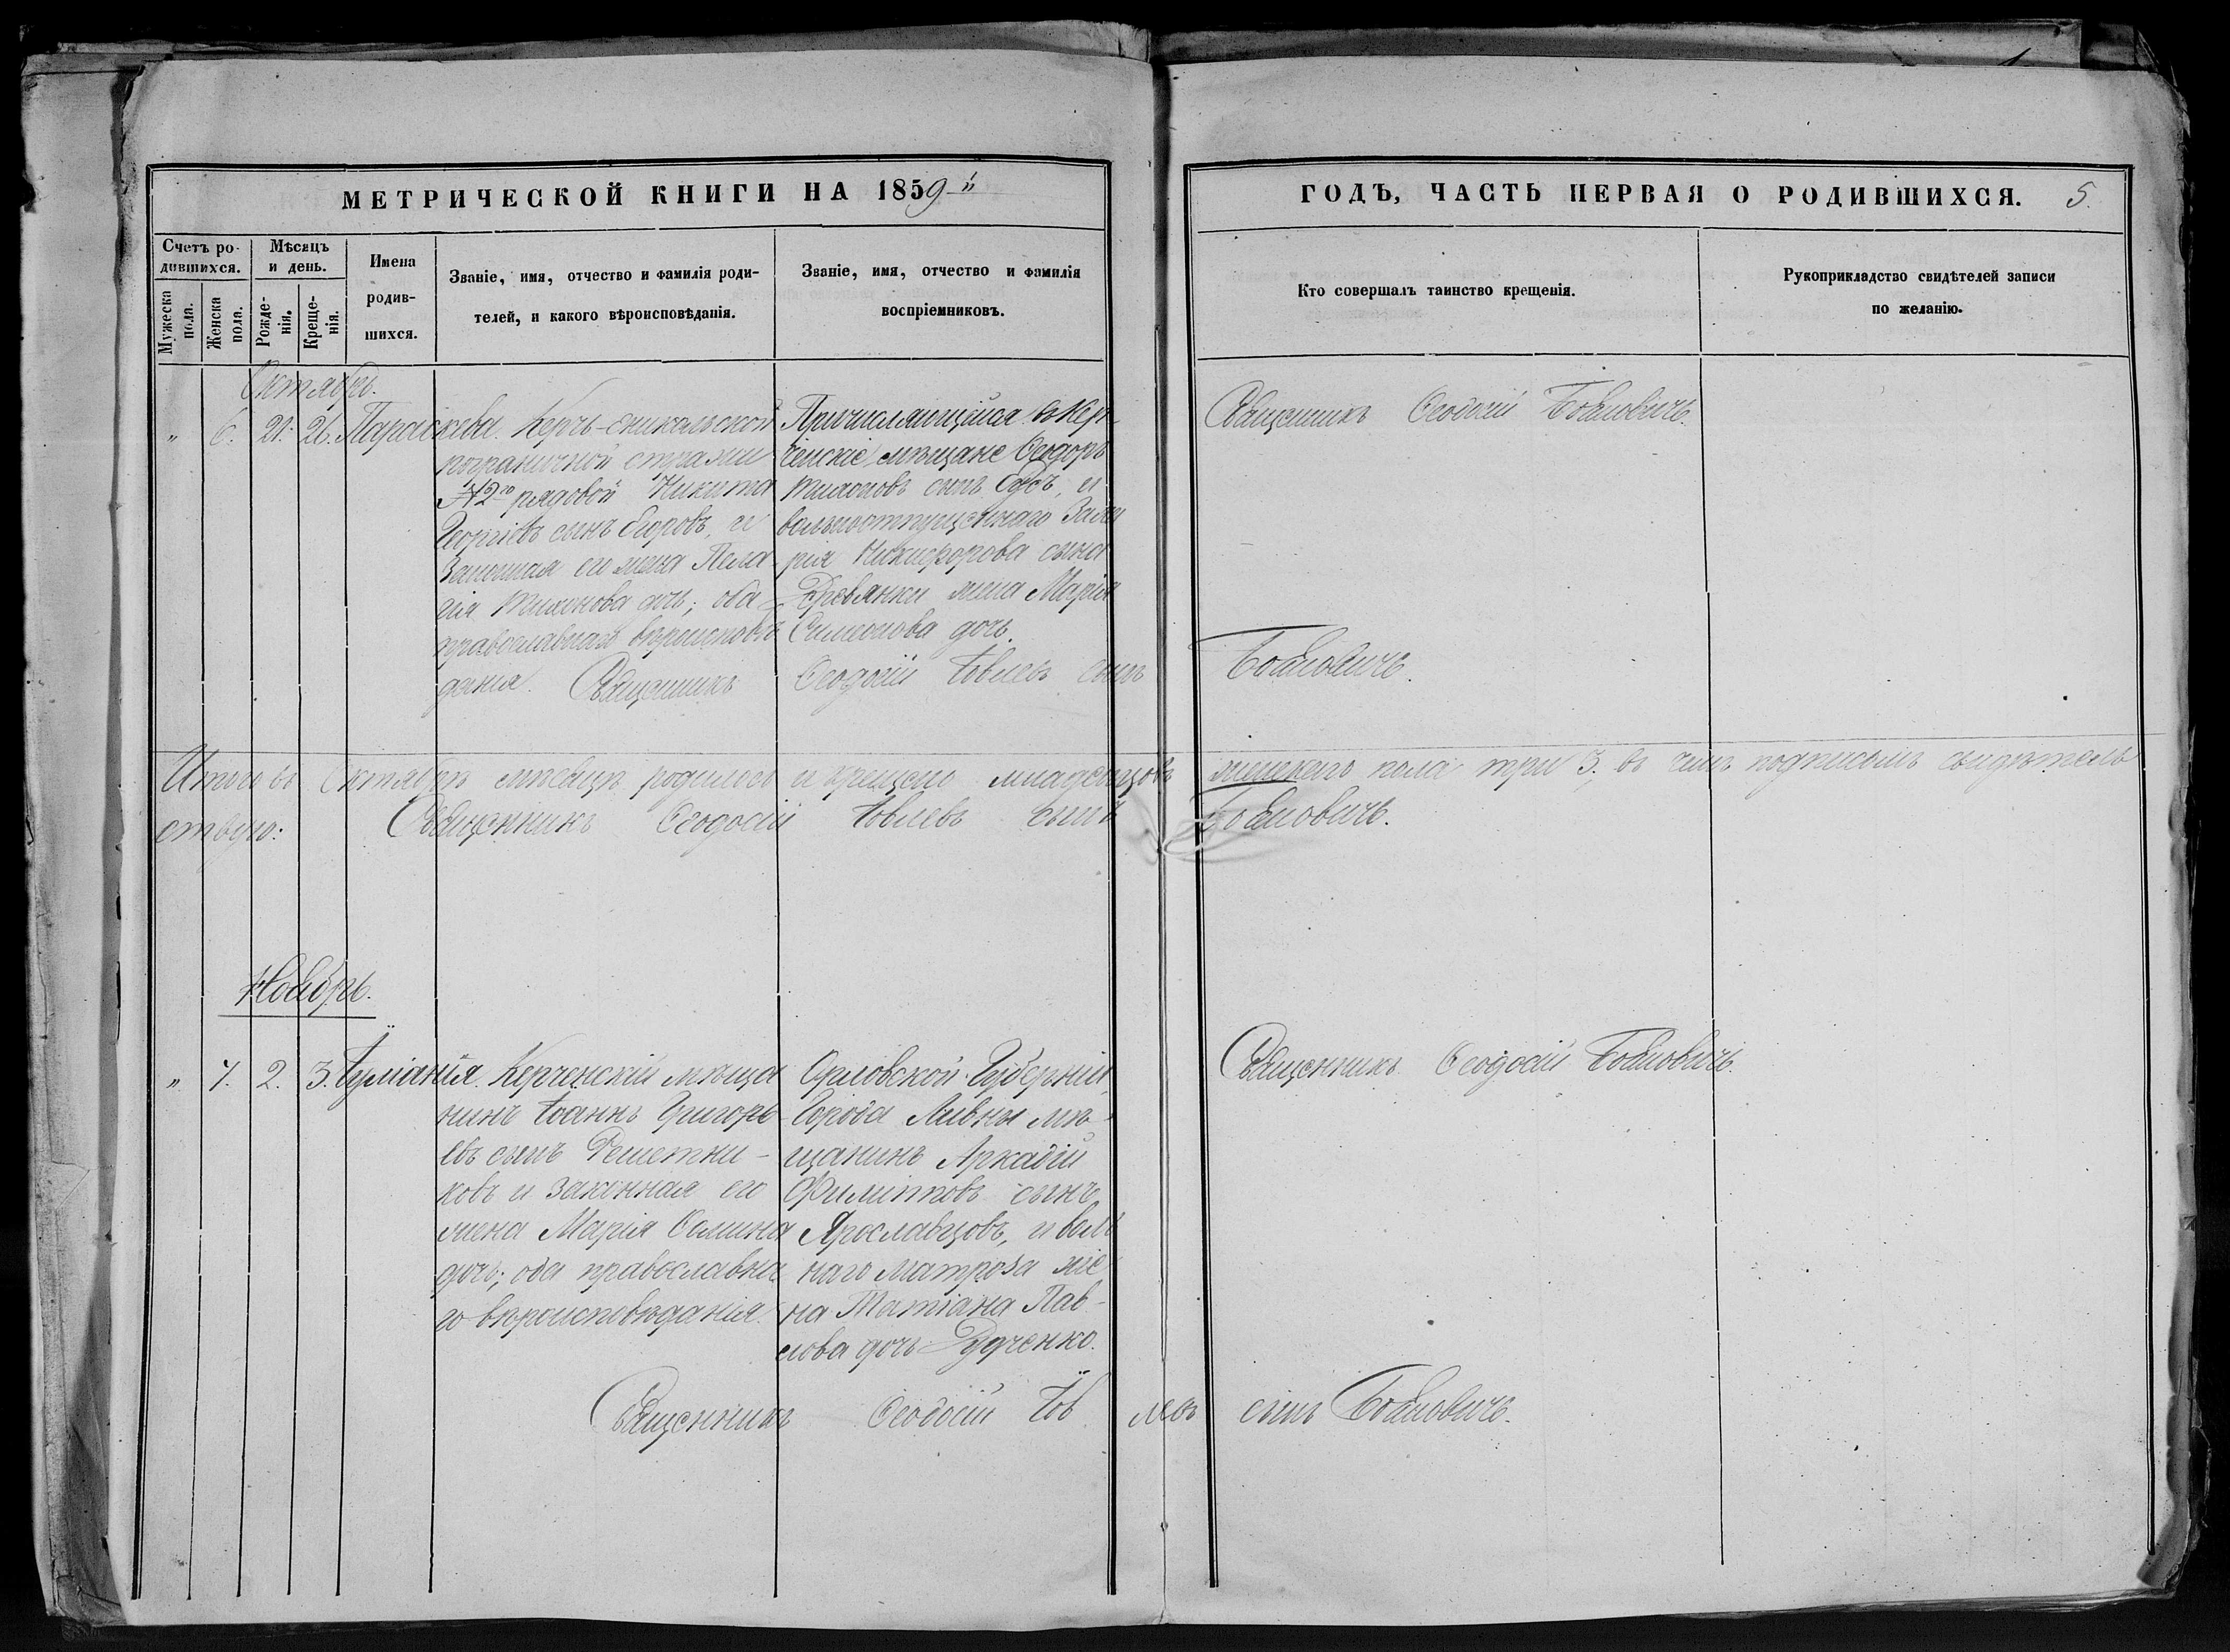 МЕТРИЧЕСКОЙ КНИГИ НА 1859
ГОДЪ, ЧАСТЬ ПЕРВАЯ О РОДИВШИХСЯ. 5.
Счетъ родившихся.
Мужеска пола.
Женска пола.
Мѣсяцъ и день.
Рожденія.
Крещенія.
Имена
родив-
шихся.
Званіе, имя, отчество и фамилія роди-
телей, и какого вѣроисповѣданія.
Званіе, имя, отчество и фамилія
воспріемниковъ.
Кто совершалъ таинство крещенія.
Рукоприкладство свидѣтелей записи
по желанію.
Октябрь.
" 6. 21. 26. Параскева.
Керчь-еникольской
пограничной стражи
№ 2го рядовой Никита
Георгіевъ сынъ Егоровъ, и
Законная его жена Пела-
гія Тихонова дочь; оба
православнаго вѣроисповѣ-
данія.
Причисляющійся въ Кер-
ченскіе мѣщане Ѳеодоръ
Тихоновъ сынъ и
вольноотпущеннаго
Никифорова сына
Древянки жена Марія
Симеонова дочь.
Священникъ Ѳеодосій Боѣловичъ.
Священникъ Ѳеодосій Іовлевъ сынъ Боѣловичъ.
Итого въ Октябрѣ мѣсяцѣ родилось и крещено младенцовъ женскаго пола три 3. въ чемъ подписомъ свидѣтель
ствую: Священникъ Ѳеодосій Іовлевъ сынъ Боѣловичъ.
Ноябрь.
" 7. 2. 3. Іуліанія.
Керченскій мѣща
нинъ Іоаннъ Григорь-
евъ сынъ Решетни-
ковъ и Законная его
жена Марія Ѳомина
дочь; оба православна
го вѣроисповѣданія.
Орловской Губерніи
Города Ливны мѣ-
щанинъ Аркадій
Филипповъ сынъ
Ярославцовъ, и воль
наго матроза же
на Татіана Пав-
лова дочь Рудченко.
Священникъ Ѳеодосій Боѣловичъ.
Священникъ Ѳеодосій Іовлевъ сынъ Боѣловичъ.